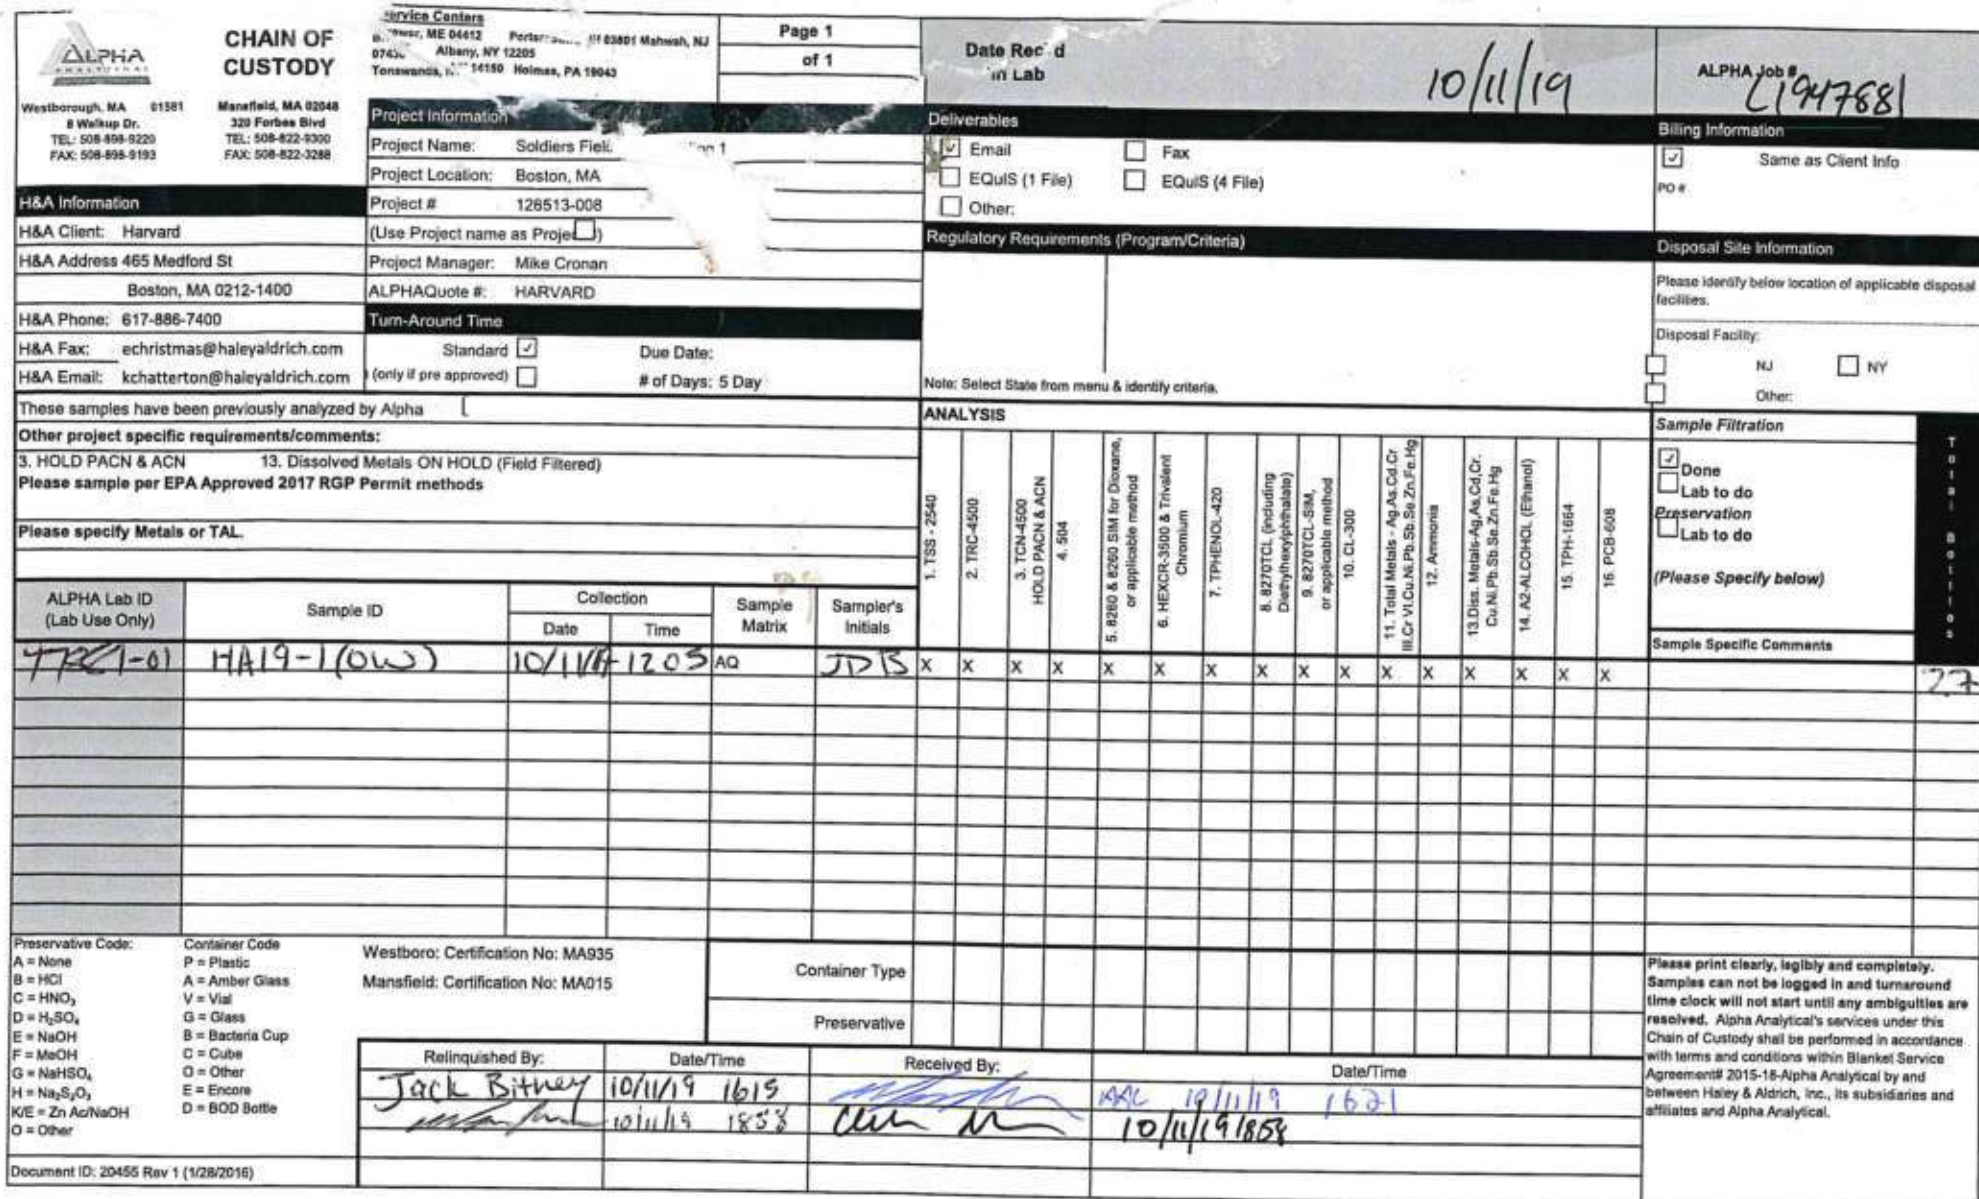 ALPHA
ANALYTICAL
CHAIN OF
CUSTODY
Service Centers
ME 04412 03801 Mahwah, NJ
Albany, NY 12205
Tonawanda, 14150 Holmes, PA 19043
Page 1
of 1
Date Rec'd
in Lab
10/11/19
ALPHA Job #
L1947881
Westborough, MA 01581
8 Walkup Dr.
TEL: 508-898-9220
FAX: 508-898-9193
Mansfield, MA 02048
320 Forbes Blvd
TEL: 508-822-9300
FAX: 508-822-3288
Project Information
Project Name: Soldiers Fiel 1
Project Location: Boston, MA
Project # 128513-008
(Use Project name as Project)
Project Manager: Mike Cronan
ALPHAQuote #: HARVARD
Deliverables
Email Fax
EQuIS (1 File) EQuIS (4 File)
Other:
Billing Information
Same as Client Info
PO #
H&A Information
H&A Client: Harvard
H&A Address 465 Medford St
Boston, MA 0212-1400
H&A Phone: 617-886-7400
H&A Fax: echristmas@haleyaldrich.com
H&A Email: kchatterton@haleyaldrich.com
Turn-Around Time
Standard Due Date:
(only if pre approved) # of Days: 5 Day
Regulatory Requirements (Program/Criteria)
Note: Select State from menu & identify criteria.
Disposal Site Information
Please identify below location of applicable disposal
facilities.
Disposal Facility:
NJ NY
Other:
These samples have been previously analyzed by Alpha
Other project specific requirements/comments:
3. HOLD PACN & ACN 13. Dissolved Metals ON HOLD (Field Filtered)
Please sample per EPA Approved 2017 RGP Permit methods
Please specify Metals or TAL.
ANALYSIS
1. TSS - 2540
2. TRC-4500
3. TCN-4500
HOLD PACN & ACN
4. 504
5. 8260 & 8260 SIM for Dioxane,
or applicable method
6. HEXCR-3500 & Trivalent
Chromium
7. TPHENOL-420
8. 8270TCL (including
Diethylhexylphthalate)
9. 8270TCL-SIM,
or applicable method
10. CL-300
11. Total Metals - Ag,As,Cd,Cr
III,Cr VI,Cu,Ni,Pb,Sb,Se,Zn,Fe,Hg
12. Ammonia
13.Diss. Metals-Ag,As,Cd,Cr,
Cu,Ni,Pb,Sb,Se,Zn,Fe,Hg
14. A2-ALCOHOL (Ethanol)
15. TPH-1664
16. PCB-608
Sample Filtration
Done
Lab to do
Preservation
Lab to do
(Please Specify below)
Sample Specific Comments
Total Bottles
ALPHA Lab ID
(Lab Use Only)
Sample ID
Collection
Date Time
Sample
Matrix
Sampler's
Initials
47881-01 HA19-1(OW) 10/11/19 1205 AQ JDB X X X X X X X X X X X X X X X X 27
Preservative Code:
A = None
B = HCl
C = HNO3
D = H2SO4
E = NaOH
F = MeOH
G = NaHSO4
H = Na2S2O3
K/E = Zn Ac/NaOH
O = Other
Container Code
P = Plastic
A = Amber Glass
V = Vial
G = Glass
B = Bacteria Cup
C = Cube
O = Other
E = Encore
D = BOD Bottle
Westboro: Certification No: MA935
Mansfield: Certification No: MA015
Container Type
Preservative
Relinquished By: Date/Time Received By: Date/Time
Jack Bitney 10/11/19 1615 AAL 10/11/19 1621
10/11/19 1858 10/11/19 1858
Please print clearly, legibly and completely.
Samples can not be logged in and turnaround
time clock will not start until any ambiguities are
resolved. Alpha Analytical's services under this
Chain of Custody shall be performed in accordance
with terms and conditions within Blanket Service
Agreement# 2015-18-Alpha Analytical by and
between Haley & Aldrich, Inc., its subsidiaries and
affiliates and Alpha Analytical.
Document ID: 20455 Rev 1 (1/28/2016)